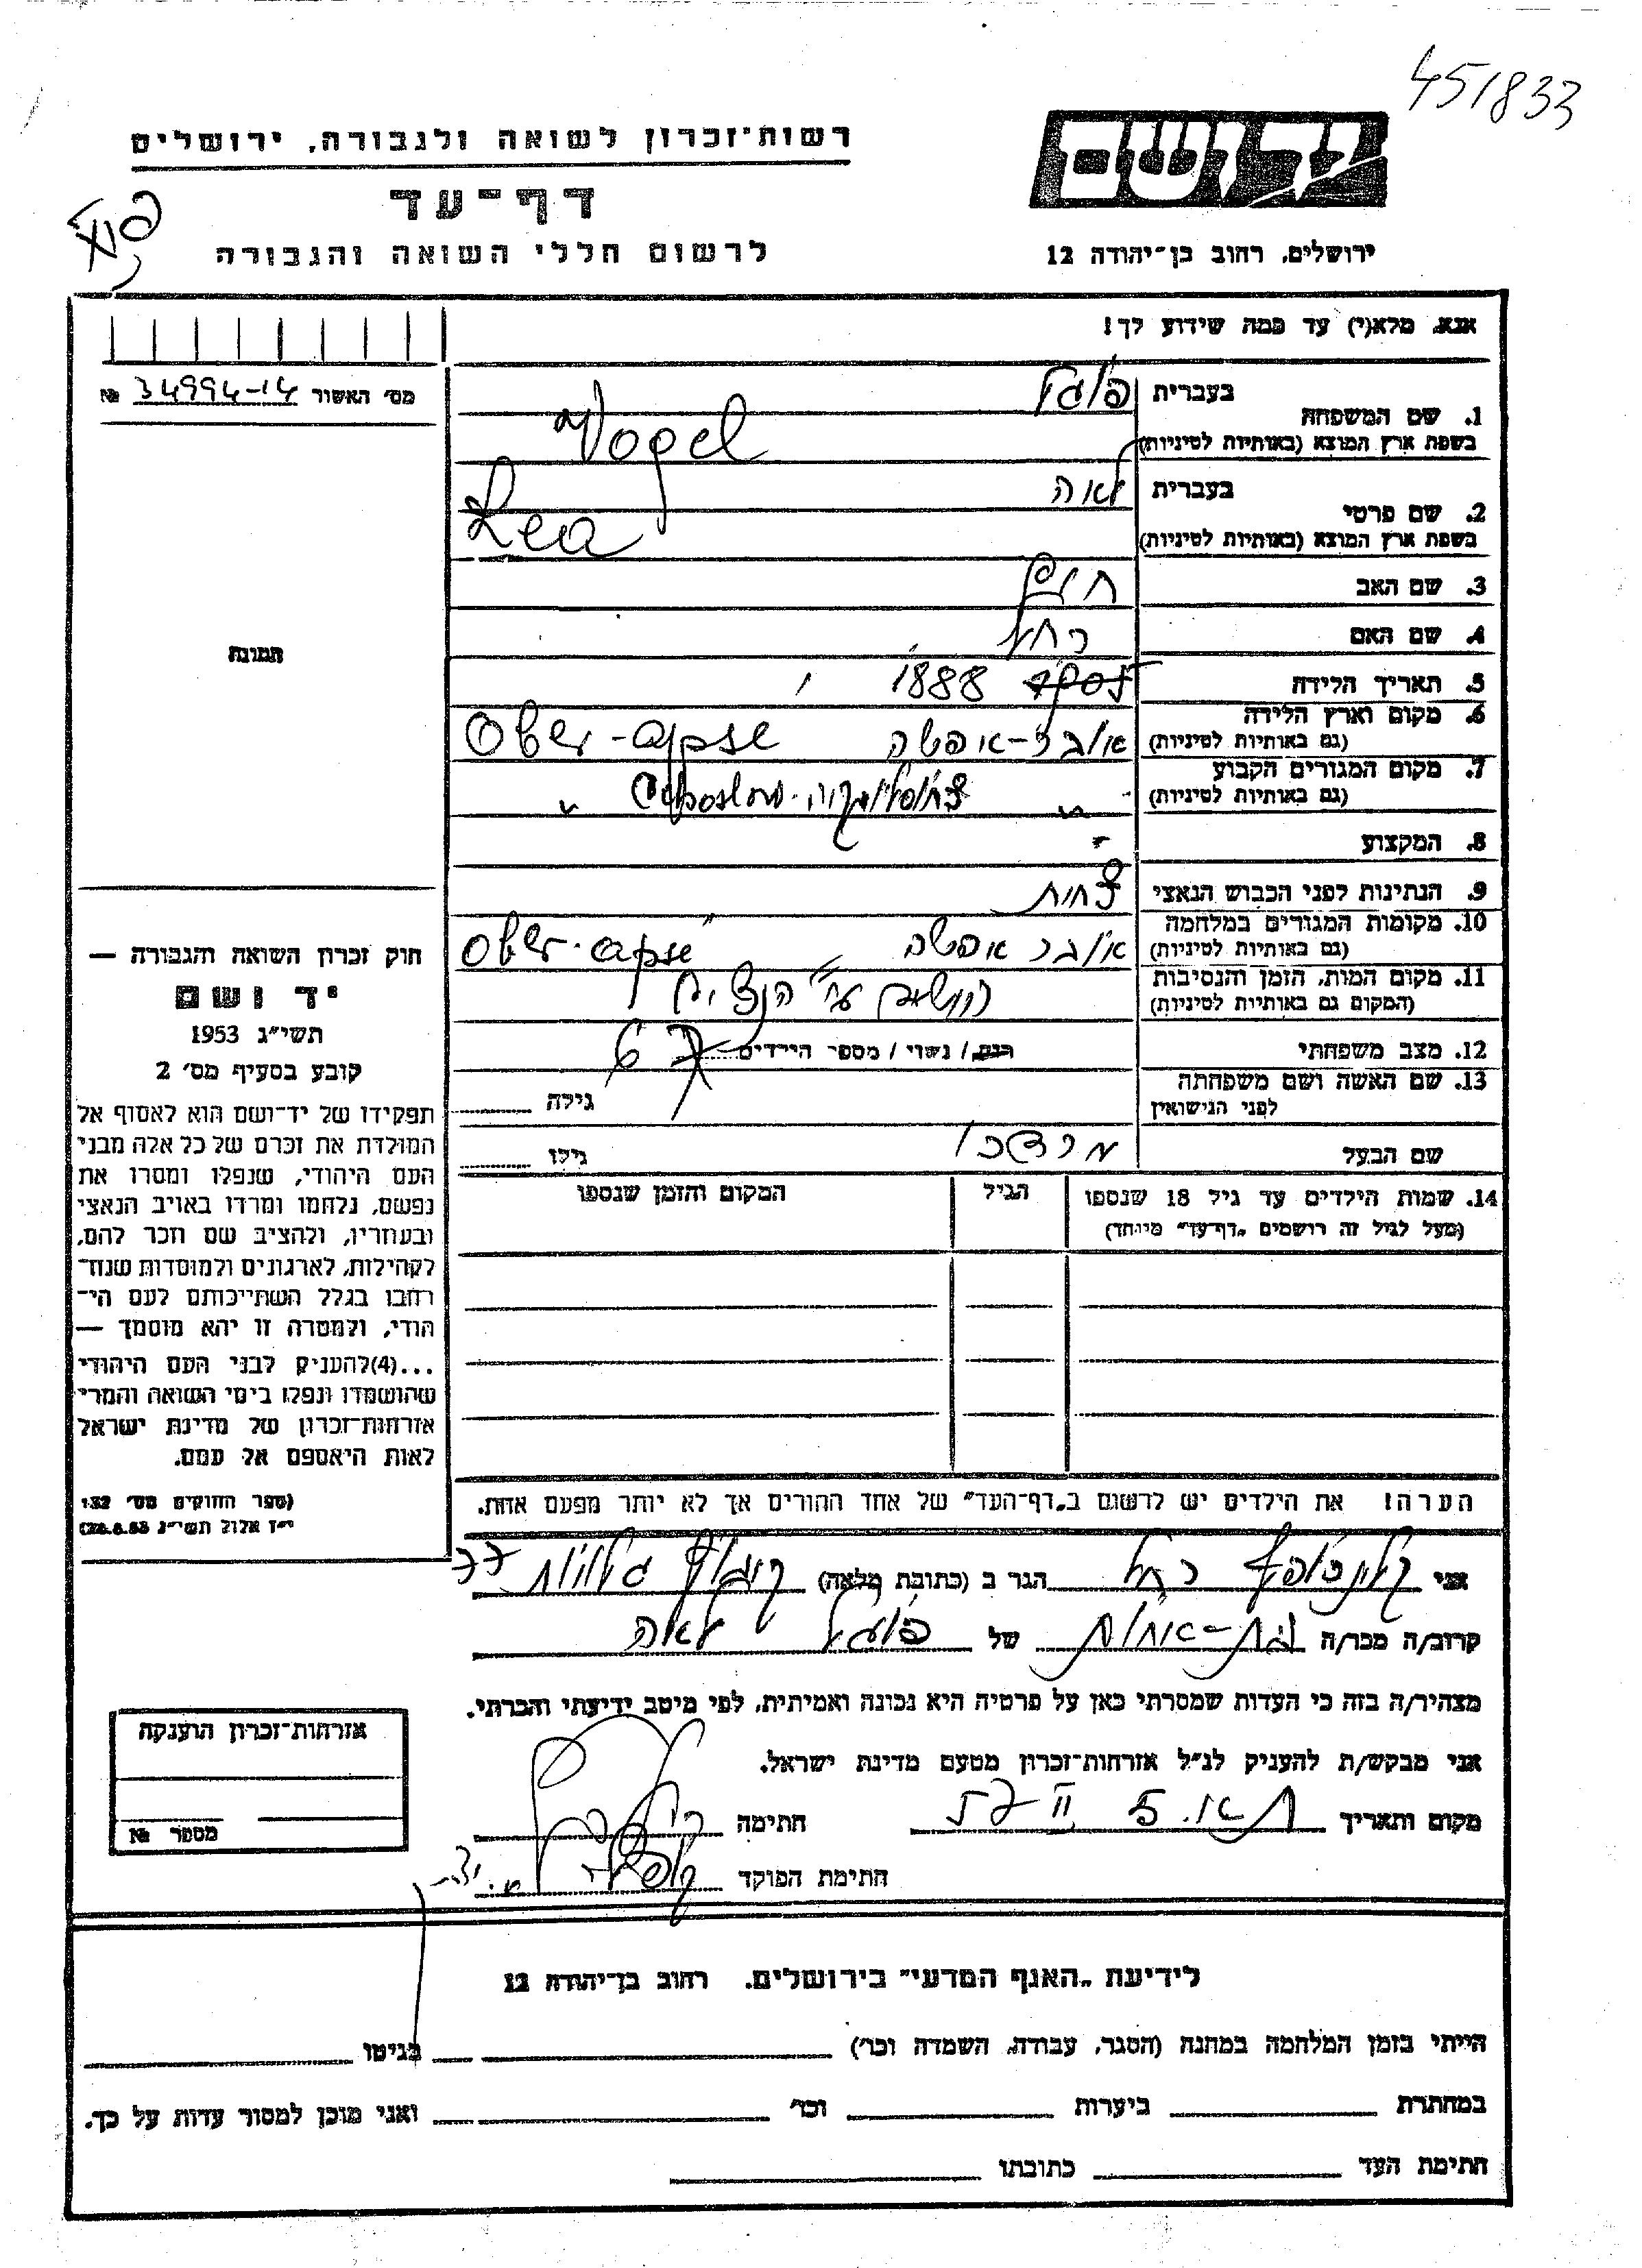 451833
רשות־זכרון לשואה ולגבורה, ירושלים
דף־עד
לרשום חללי השואה והגבורה
יד ושם
ירושלים, רחוב בן־יהודה 12
אנא, מלא(י) עד כמה שידוע לך!
מס׳ האשור 34994-14 №
תמונה
1. שם המשפחה
בעברית פוגל
בשפת ארץ המוצא (באותיות לטיניות) Vogel
2. שם פרטי
בעברית לאה
בשפת ארץ המוצא (באותיות לטיניות) Lea
3. שם האב חיים
4. שם האם רחל
5. תאריך הלידה 1888
6. מקום וארץ הלידה
(גם באותיות לטיניות) אובר-אפשה Ober-apse
7. מקום המגורים הקבוע
(גם באותיות לטיניות) " "
8. המקצוע -
9. הנתינות לפני הכבוש הנאצי
10. מקומות המגורים במלחמה
(גם באותיות לטיניות) אובר אפשה Ober-apse
11. מקום המות, הזמן והנסיבות
(המקום גם באותיות לטיניות) ע"י הנצים
12. מצב משפחתי רווק / נשוי / מספר הילדים 6
13. שם האשה ושם משפחתה
לפני הנישואין גילה
שם הבעל מרדכי גילו
14. שמות הילדים עד גיל 18 שנספו
(מעל לגיל זה רושמים „דף־עד" מיוחד)
הגיל
המקום והזמן שנספו
חוק זכרון השואה והגבורה —
יד ושם
תשי״ג 1953
קובע בסעיף מס׳ 2
תפקידו של יד־ושם הוא לאסוף אל
המולדת את זכרם של כל אלה מבני
העם היהודי, שנפלו ומסרו את
נפשם, נלחמו ומרדו באויב הנאצי
ובעוזריו, ולהציב שם וזכר להם,
לקהילות, לארגונים ולמוסדות שנח־
רבו בגלל השתייכותם לעם הי־
הודי, ולמטרה זו יהא מוסמך —
...(4) להעניק לבני העם היהודי
שהושמדו ונפלו בימי השואה והמרי
אזרחות־זכרון של מדינת ישראל
לאות היאספם אל עמם.
(ספר החוקים מס׳ 132
י״ז אלול תשי״ג 28.8.53)
הערה! את הילדים יש לרשום ב„דף־העד" של אחד ההורים אך לא יותר מפעם אחת.
אני רחל הגר ב (כתובת מלאה) גלויות
קרוב/ה מכר/ה בת-אחות של פוגל לאה
מצהיר/ה בזה כי העדות שמסרתי כאן על פרטיה היא נכונה ואמיתית, לפי מיטב ידיעתי והכרתי.
אני מבקש/ת להעניק לנ״ל אזרחות־זכרון מטעם מדינת ישראל.
מקום ותאריך חתימה
חתימת הפוקד
אזרחות־זכרון הוענקה
מספר №
לידיעת „האגף המדעי" בירושלים, רחוב בן־יהודה 12
הייתי בזמן המלחמה במחנה (הסגר, עבודה, השמדה וכו׳) בגיטו
במחתרת ביערות וכו׳ ואני מוכן למסור עדות על כך.
חתימת העד כתובתו